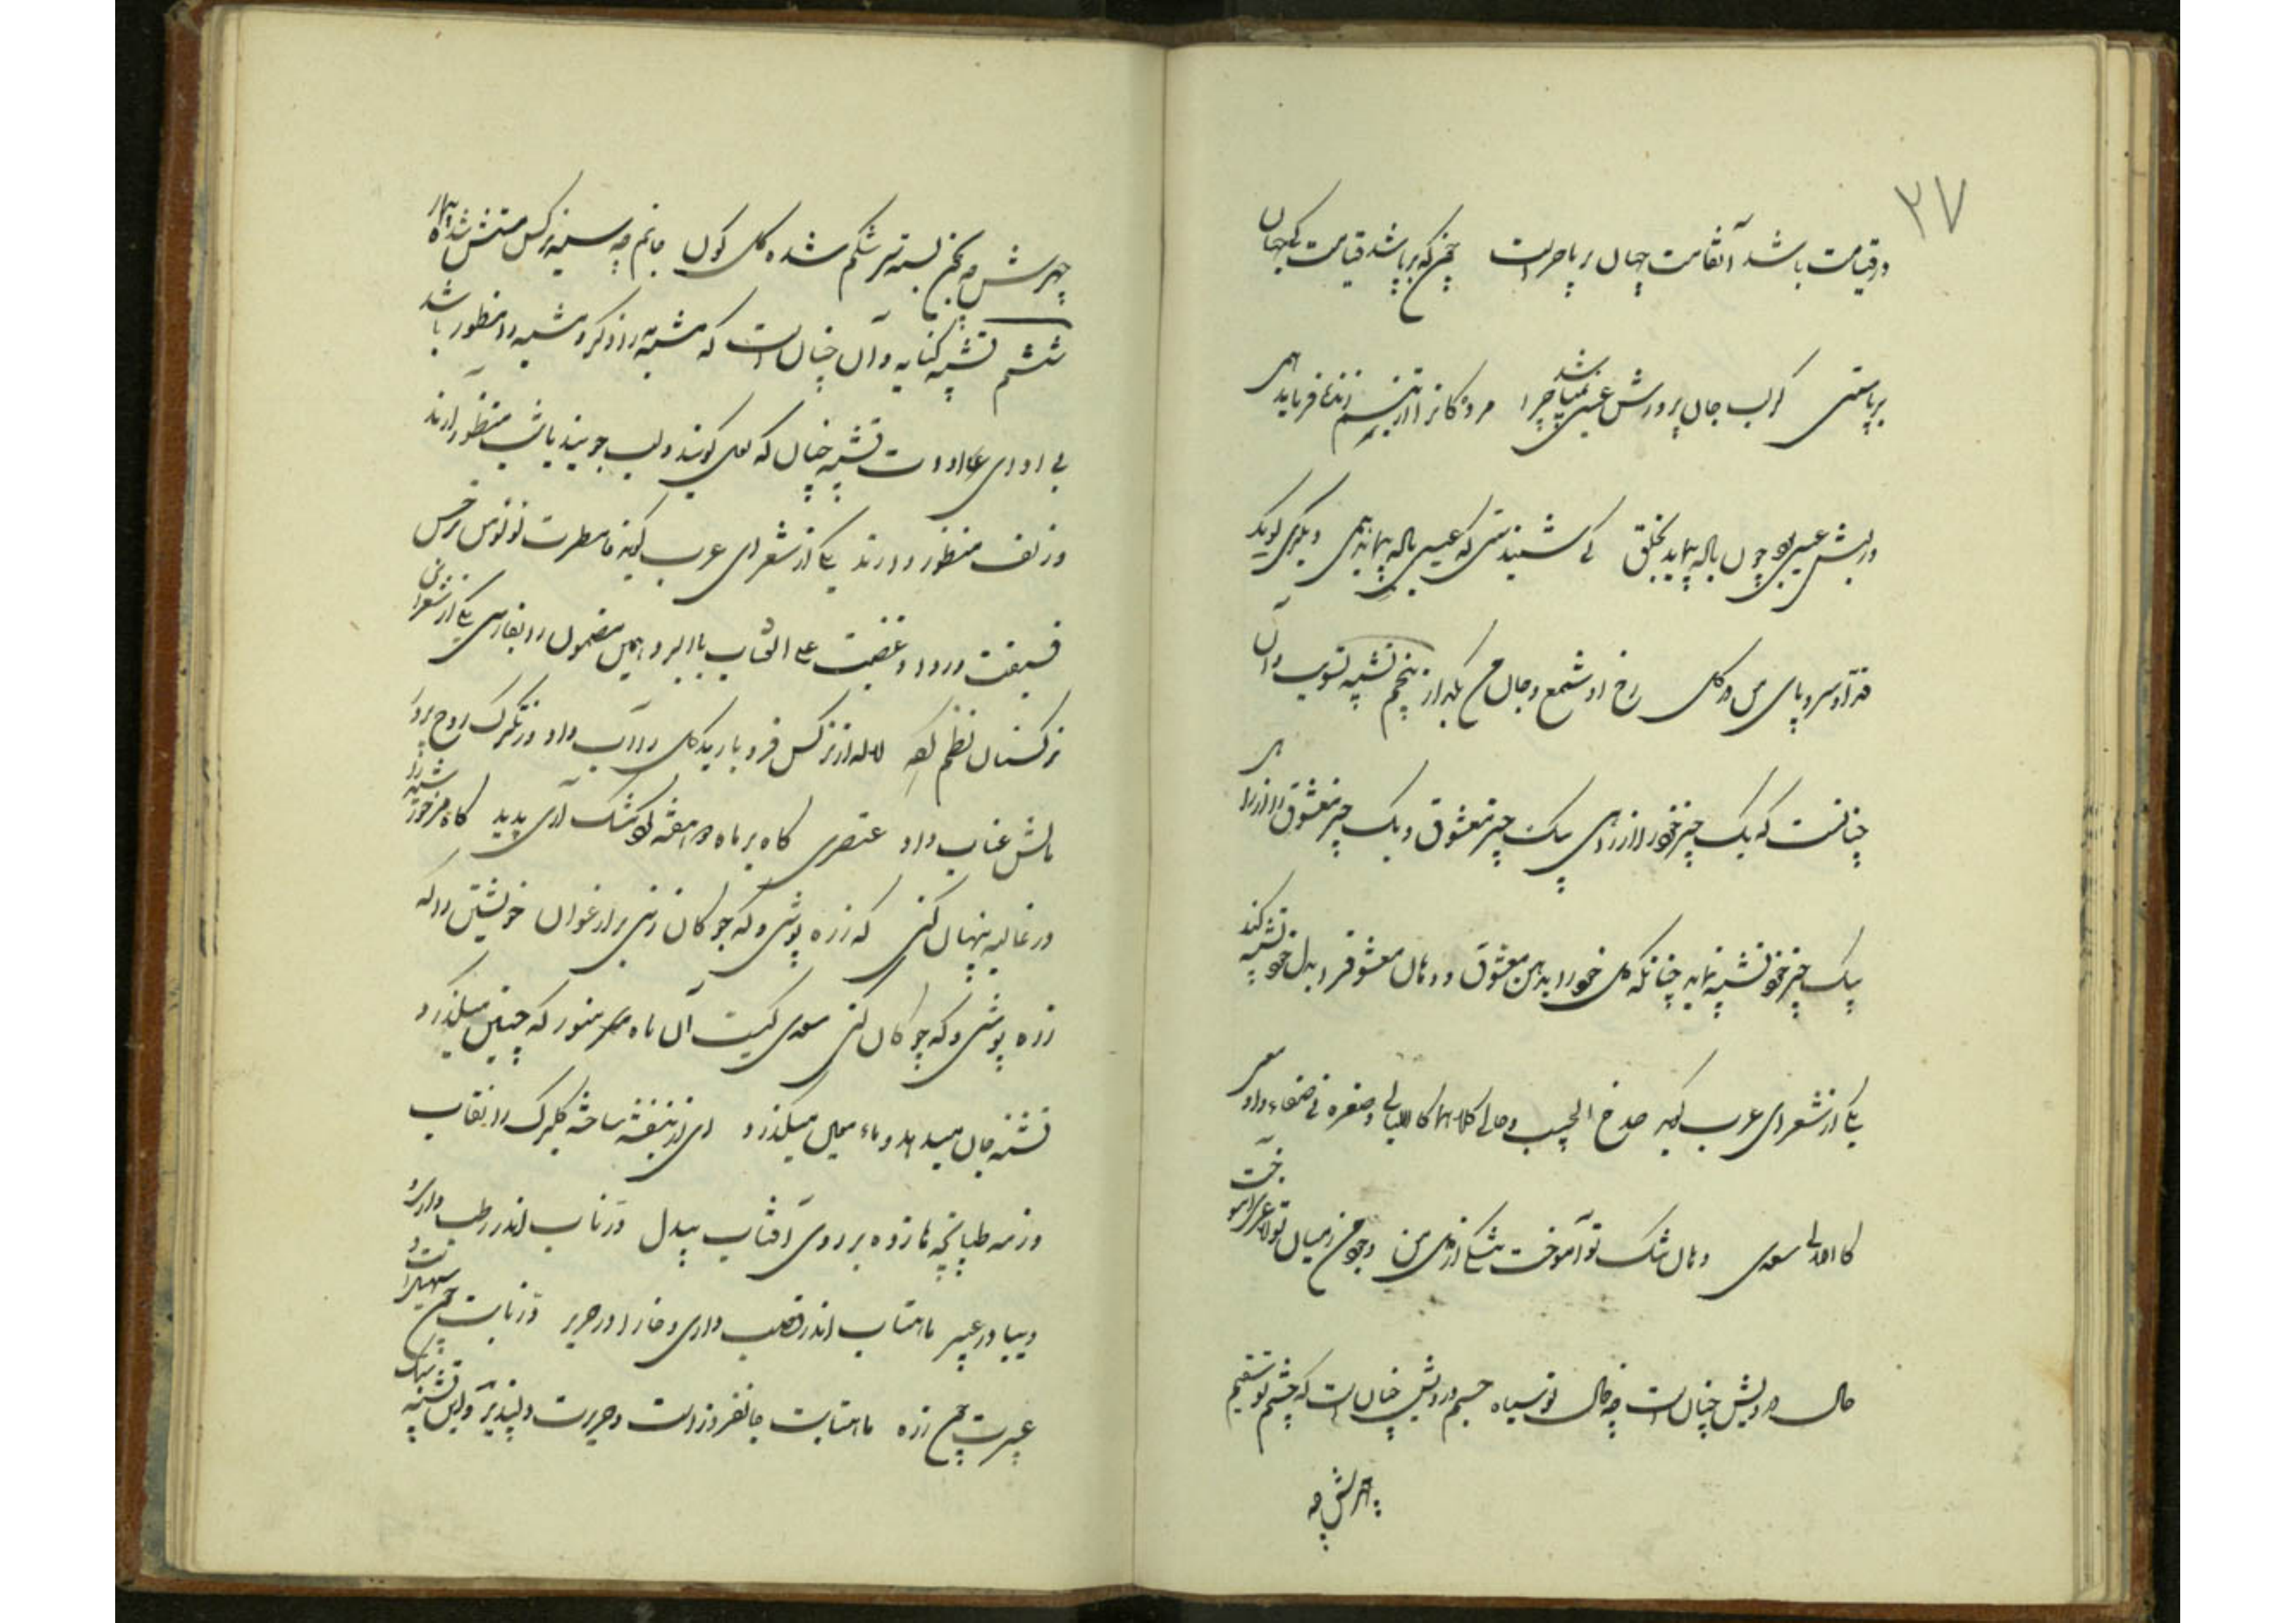 ۲۷
در قیامت باشد آنقامت جهان بر پا چراست چمن که بر پا شد قیامت کی جهان
بر پاستی گر لب جان پرورش عیسی نباشد چرا مردگانرا از تبسم زندها فرماید همی
ور لبش عیسی بود چون باله پیماید بخلق کی شنیدستی که عیسی باله پیماید همی دیگری گوید
قد او سرو پای من در گل رخ او شمع و جان من بگداز پنجم تشبیه تسویه و آن
چنانست که یک چیز خود را از برای یک چیز معشوق و یک چیز معشوق را از برای
یک چیز خود تشبیه نماید چنانکه گل خود را بدهن معشوق و دهان معشوق را بدل خود تشبیه کند
یکی از شعرای عرب گوید صدغ الحبیب و حالی کلاهما کاللیالی و ثغره فی صفاء و ادمعی
کاللالی سعدی دهان تنگ تو آموخت تنگی از دل من وجود من ز میان تو لاغری آموخت
حال درویش چنان است که خال تو سیاه جسم درویش چنان است که چشم تو سقیم
چهرش چه
چهرش چه چمن بسته سرشکم شده گل گون جانم چه سینه نرگس مستش شده بیمار
ششم تشبیه کنایه و آن چنان است که مشبه به را ذکر و مشبه را منظور باشد
بی ادای ادات تشبیه چنان که لعل گویند و لب جویند یا شب منظور دارند
و زلف منظور دارند یکی از شعرای عرب گوید فامطرت لؤلؤا من نرجس
فسقت وردا و عضت علی العناب بالبرد و همین مضمون را بفارسی یکی از شعرای
نظم کرده لاله از نرگس فرو بارید گل را آب داد وز تگرگ روح پرور
مالش عناب داد عنصری گاه بر ماه دو هفته گرد مشک آری پدید گاه مر خورشید را
در غالیه پنهان کنی گه زره پوشی و گه چوگان زنی بر ارغوان خویشتن را گه
زره پوشی و گه چوگان کنی سعدی کیست آن ماه منور که چنین میگذرد
تشنه جان میدهد و ماء معین میگذرد ای از بنفشه ساخته گلبرگ را نقاب
وز مه طپانچه ها زده بر روی آفتاب بیدل در ناب اندر رطب داری و
دیبا در عبیر ماهتاب اندر قصب داری و خارا در حریر در نابت
عبیرت چمن زده ماهتابت جانفروز است و حریرت دلپذیر و این تشبیه